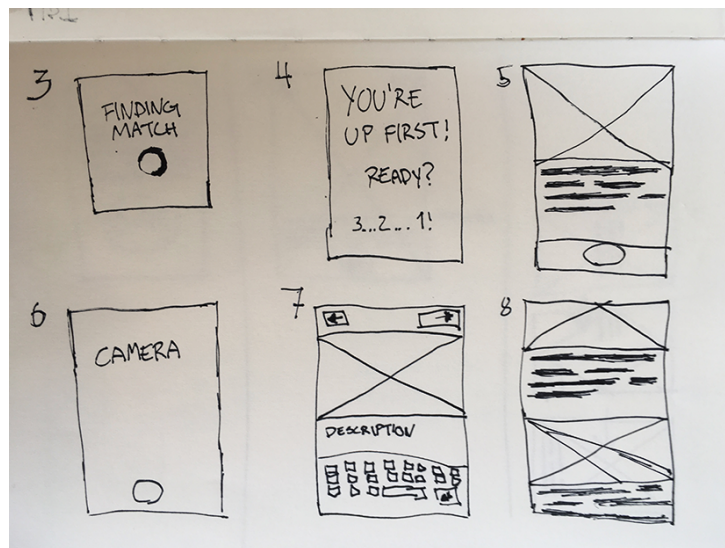 3
FINDING
MATCH
4
YOU'RE
UP FIRST!
READY?
3...2...1!
5
6
CAMERA
7
DESCRIPTION
8